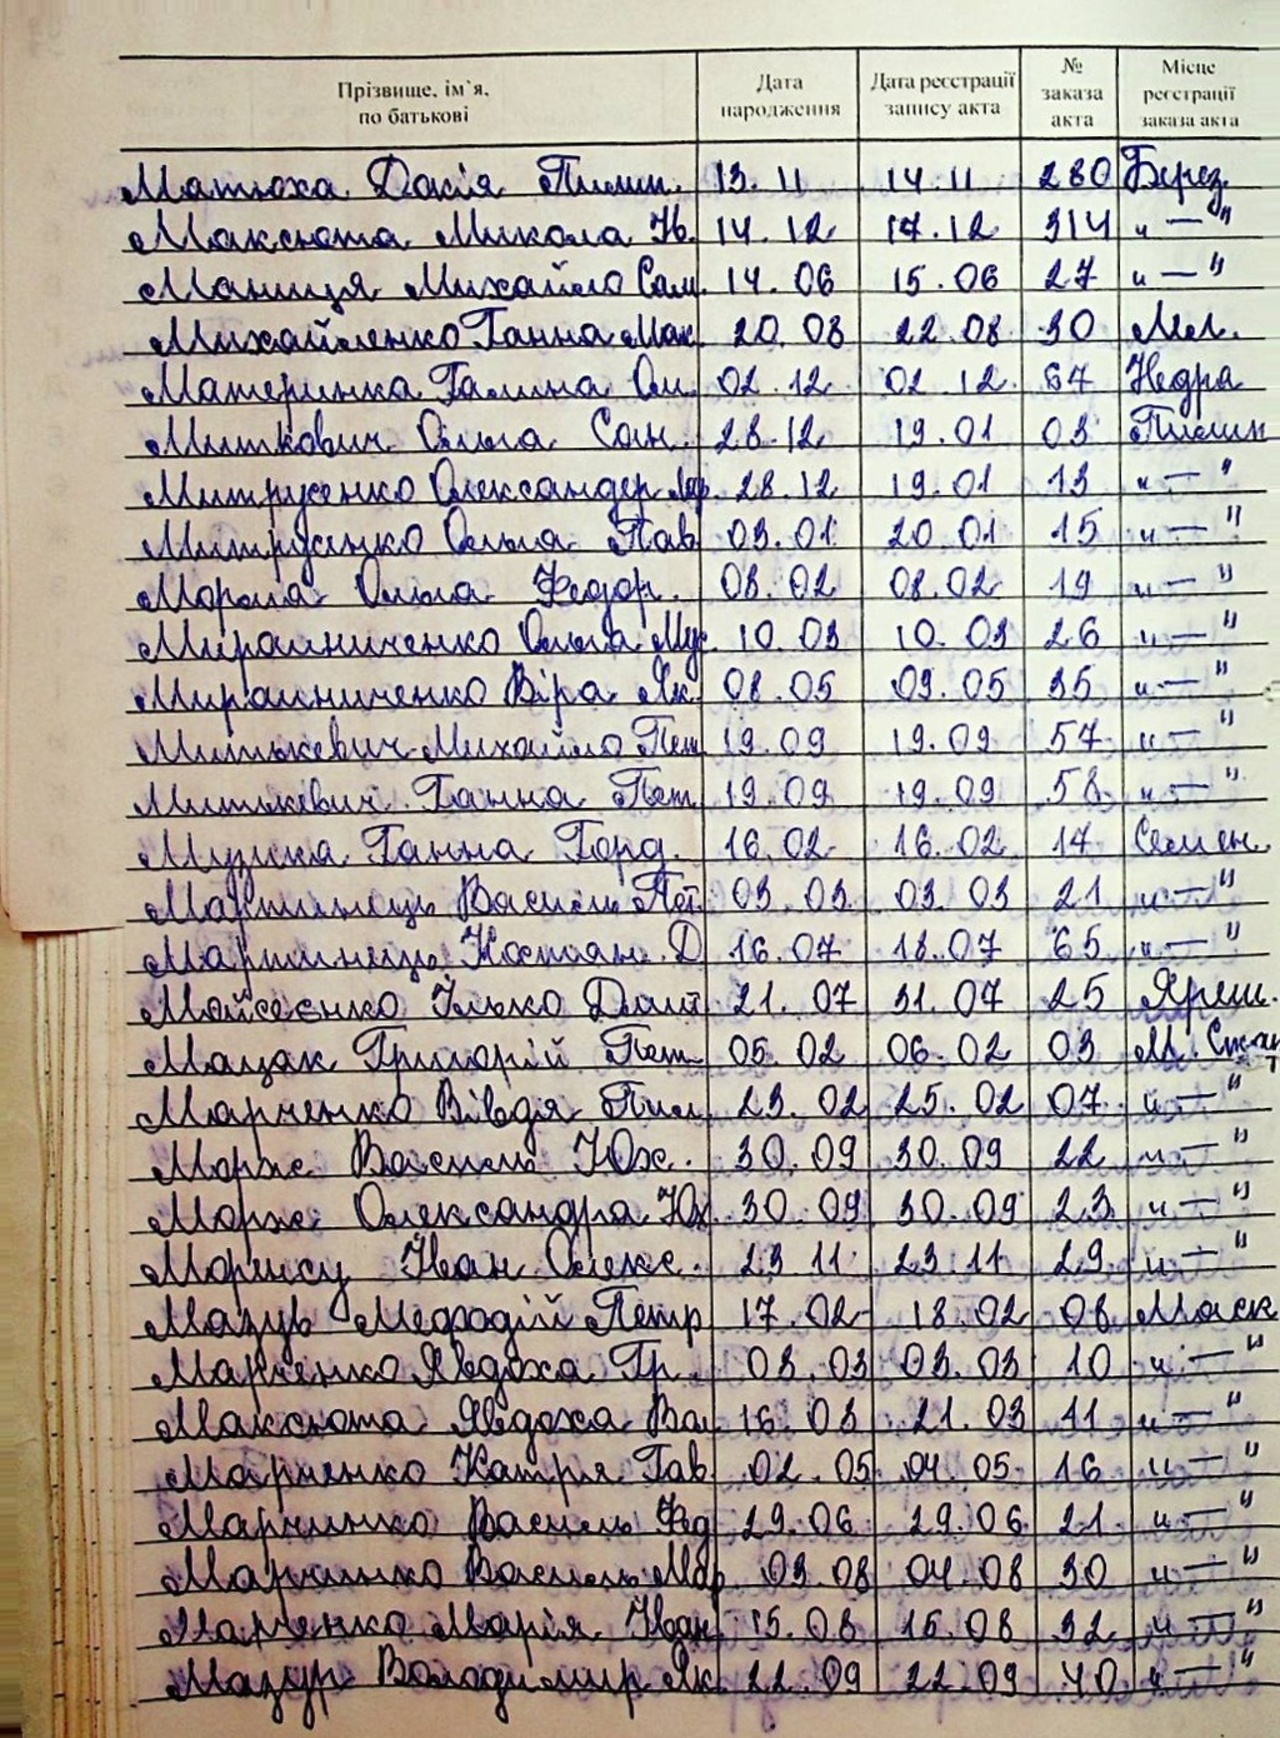 Прізвище, ім`я, по батькові | Дата народження | Дата реєстрації запису акта | № заказа акта | Місце реєстрації заказа акта
Матюха Докія Пилип. 13. 11 14. 11 280 Берез.
Максюта Микола Н. 14. 12 17. 12 314 " — "
Маниця Михайло Сам. 14. 06 15. 06 27 " — "
Михайленко Ганна Мак. 20. 08 22. 08 30 Мел.
Материнка Галина Ол. 02. 12 02. 12. 67 Недра
Миткович Ольга Сон. 28. 12 19. 01 03 Пилип
Митрусенко Олександер 28. 12 19. 01 13 " — "
Митрусенко Ольга Пав. 03. 01 20. 01 15 " — "
Морла Ольга Федор. 08. 02 08. 02 19 " — "
Мирошниченко Ольга Мус. 10. 03 10. 03 26 " — "
Мирошниченко Віра Як. 08. 05 09. 05 35 " — "
Митькевич Михайло Пет. 19. 09 19. 09 57 " — "
Митькевич Ганна Пет. 19. 09 19. 09 58 " — "
Музика Ганна Горд. 16. 02 16. 02 17 Семен.
Мартинець Василь Пет. 03. 03. 03. 03 21 " — "
Мартинець Костян. Д 16. 07 18. 07 65 " — "
Мойсеєнко Ілько Дмит 21. 07 31. 07 25 Яреш.
Мацак Григорій Пет. 05. 02 06. 02 03 М. Стар
Марченко Вівдя Пил. 23. 02 25. 02 07 " — "
Морже Василь Юх. 30. 09 30. 09 22 " — "
Морже Олександра Юх 30. 09 30. 09 23 " — "
Моренсу Іван Олекс. 23. 11 23. 11 29 " — "
Мазур Мефодій Петр 17. 02 18. 02 08 Моск
Марченко Явдоха Гр. 03. 03 03. 03 10 " — "
Максюта Явдоха Вас. 16. 03 21. 03 11 " — "
Марченко Катря Гав. 02. 05 04. 05 16 " — "
Марчинко Василь Фед 29. 06 29. 06 21 " — "
Марчинко Василь Мар. 03. 08 04. 08 30 " — "
Марченко Марія Іван 15. 08 15. 08 32 " — "
Мазур Володимир Як. 22. 09 22. 09 40 " — "